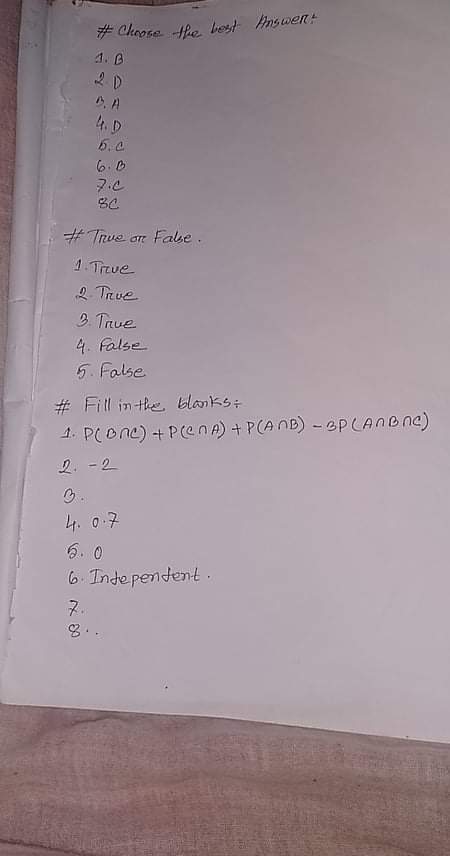 # Choose the best Answer:
1. B
2. D
3. A
4. D
5. C
6. B
7. C
8C
# True or False.
1. True
2. True
3. True
4. False
5. False
# Fill in the blanks:
1. P(B∩C) + P(C∩A) + P(A∩B) - 3P(A∩B∩C)
2. -2
3.
4. 0.7
5. 0
6. Independent.
7.
8..